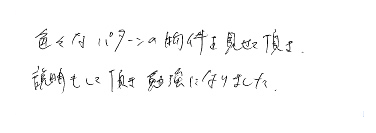 色々なパターンの物件を見せて頂き.
説明もして頂き勉強になりました.